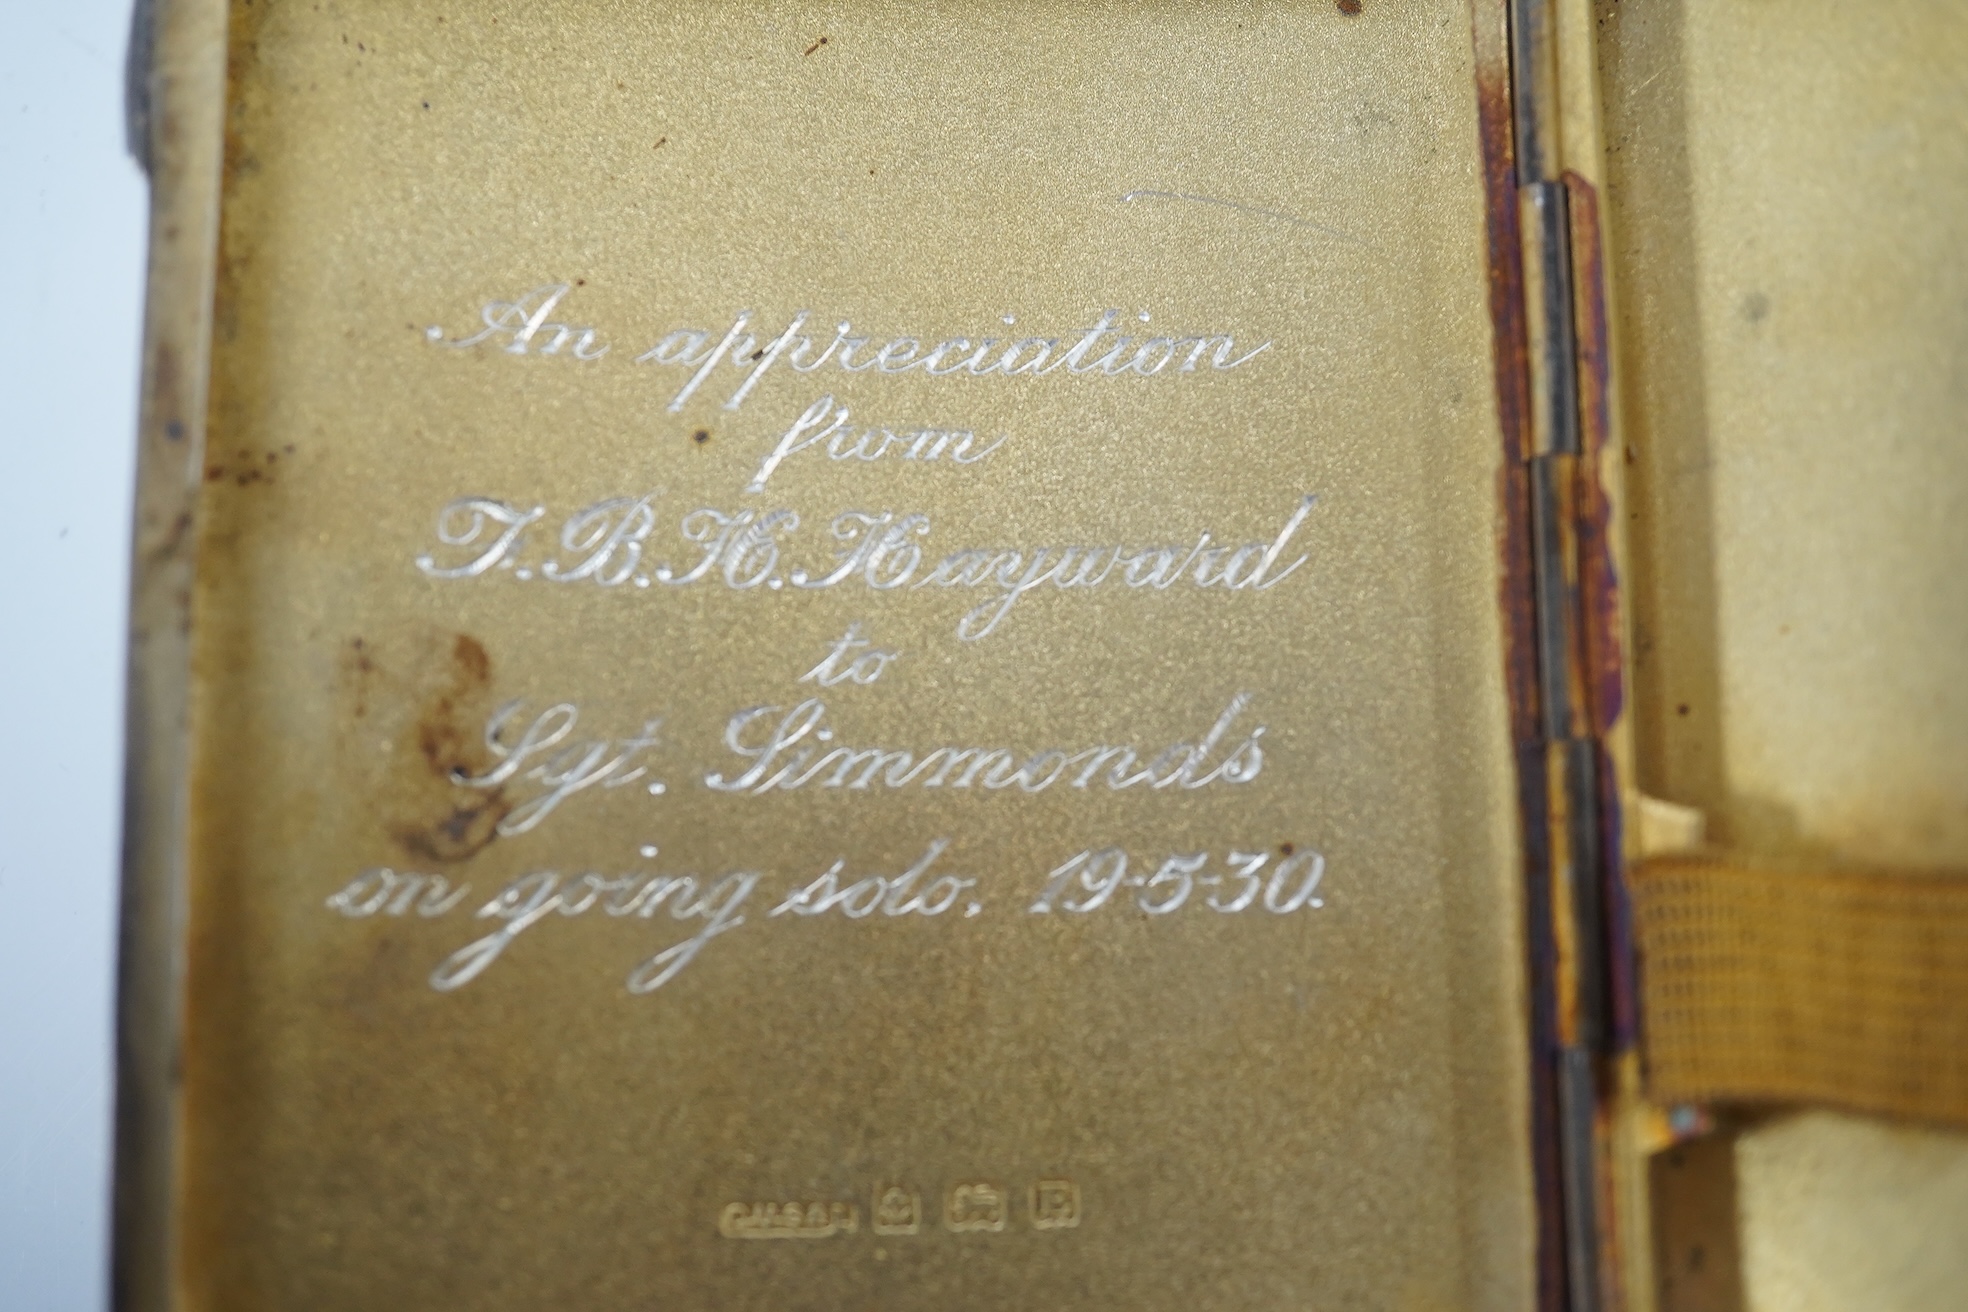 An appreciation
from
T.B.H. Hayward
to
Sgt. Simmonds
on going solo. 19-5-30.